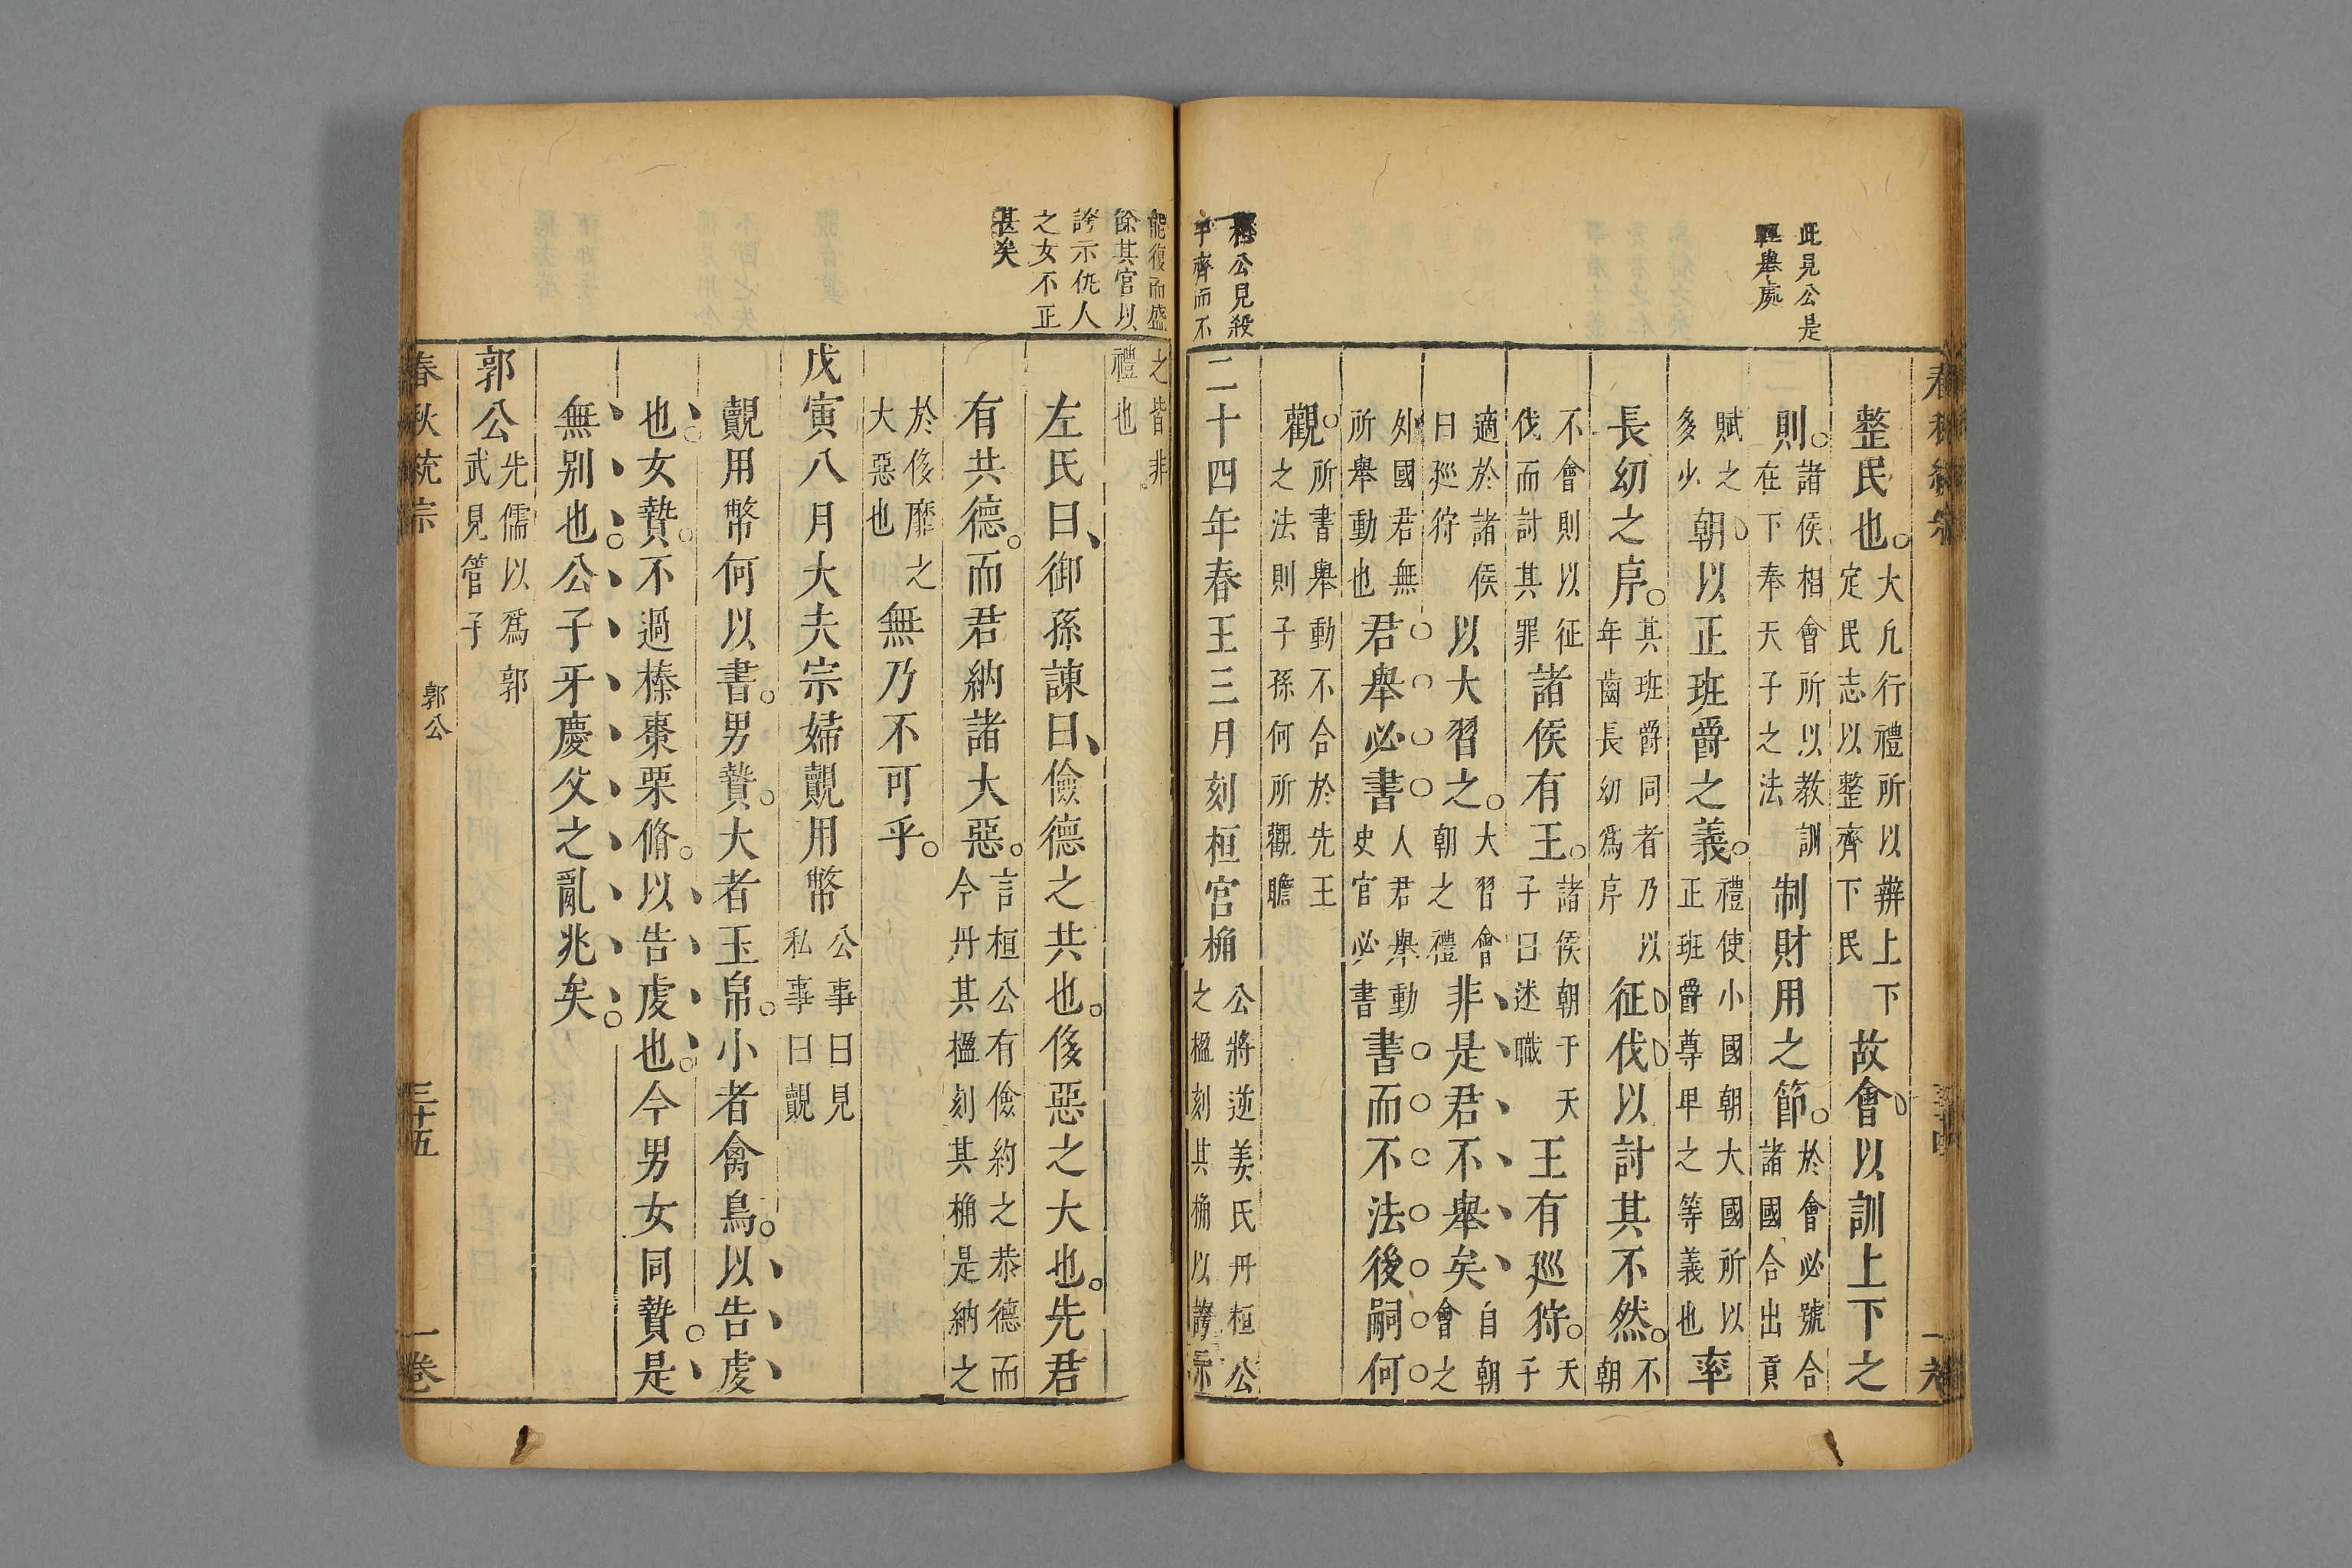 此見公是
舉處
整民也大凡行禮所以辨上下定民志以整齊下民故會以訓上下之
則諸侯相會所以教訓在下奉天子之法制財用之節於會必號合諸國合出貢
賦之多少朝以正班爵之義禮使小國朝大國所以正班爵尊卑之等義也率
長幼之序其班爵同者乃以年齒長幼爲序征伐以討其不然不朝
不會則以征伐而討其罪諸侯有王諸侯朝于天子曰述職王有巡狩天子
適於諸侯曰巡狩以大習之大習會朝之禮非是君不舉矣自朝會之
外國君無所舉動也君舉必書人君舉動史官必書書而不法後嗣何
觀所書舉動不合於先王之法則子孫何所觀瞻
桓公見殺
于齊而不
二十四年春王三月刻桓宮桷公將逆姜氏丹桓公之楹刻其桷以誇示
能復而盛
餙其官以
誇示仇人
之女不正
甚矣
之皆非禮也
左氏曰御孫諫曰儉德之共也侈惡之大也先君
有共德而君納諸大惡言桓公有儉約之恭德而今丹其楹刻其桷是納之
於侈靡之大惡也無乃不可乎
戊寅八月大夫宗婦覿用幣公事曰見私事曰覿
覿用幣何以書男贄大者玉帛小者禽鳥以告虔
也女贄不過榛棗栗脩以告虔也今男女同贄是
無別也公子牙慶父之亂兆矣
郭公先儒以爲郭武見管子
春秋統宗 郭公 三十五 一卷